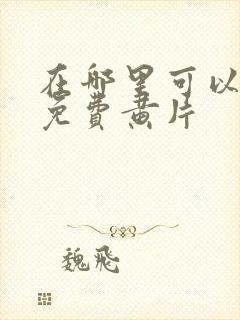 在那里可以
免费黄片
魏飛